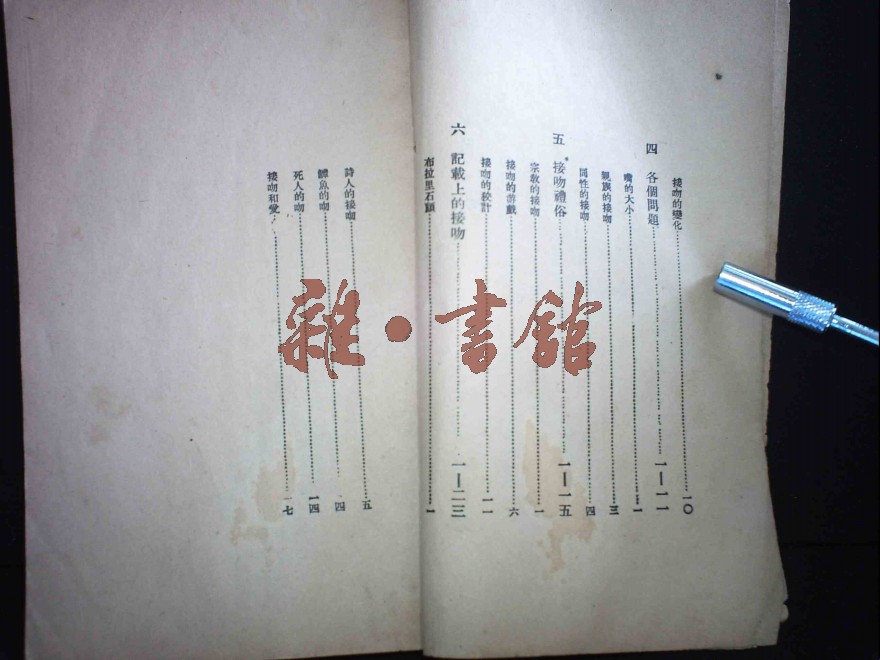 接吻的變化……一〇
四 各個問題……一—一一
嘴的大小……一
親族的接吻……三
同性的接吻……四
五 接吻禮俗……一—一五
宗敎的接吻……一
接吻的遊戲……六
接吻的秘計……一一
六 記載上的接吻……一—二三
布拉里石頭……一
詩人的接吻……五
鰾魚的吻……四
死人的吻……一四
接吻和愛……一七
雜·書館